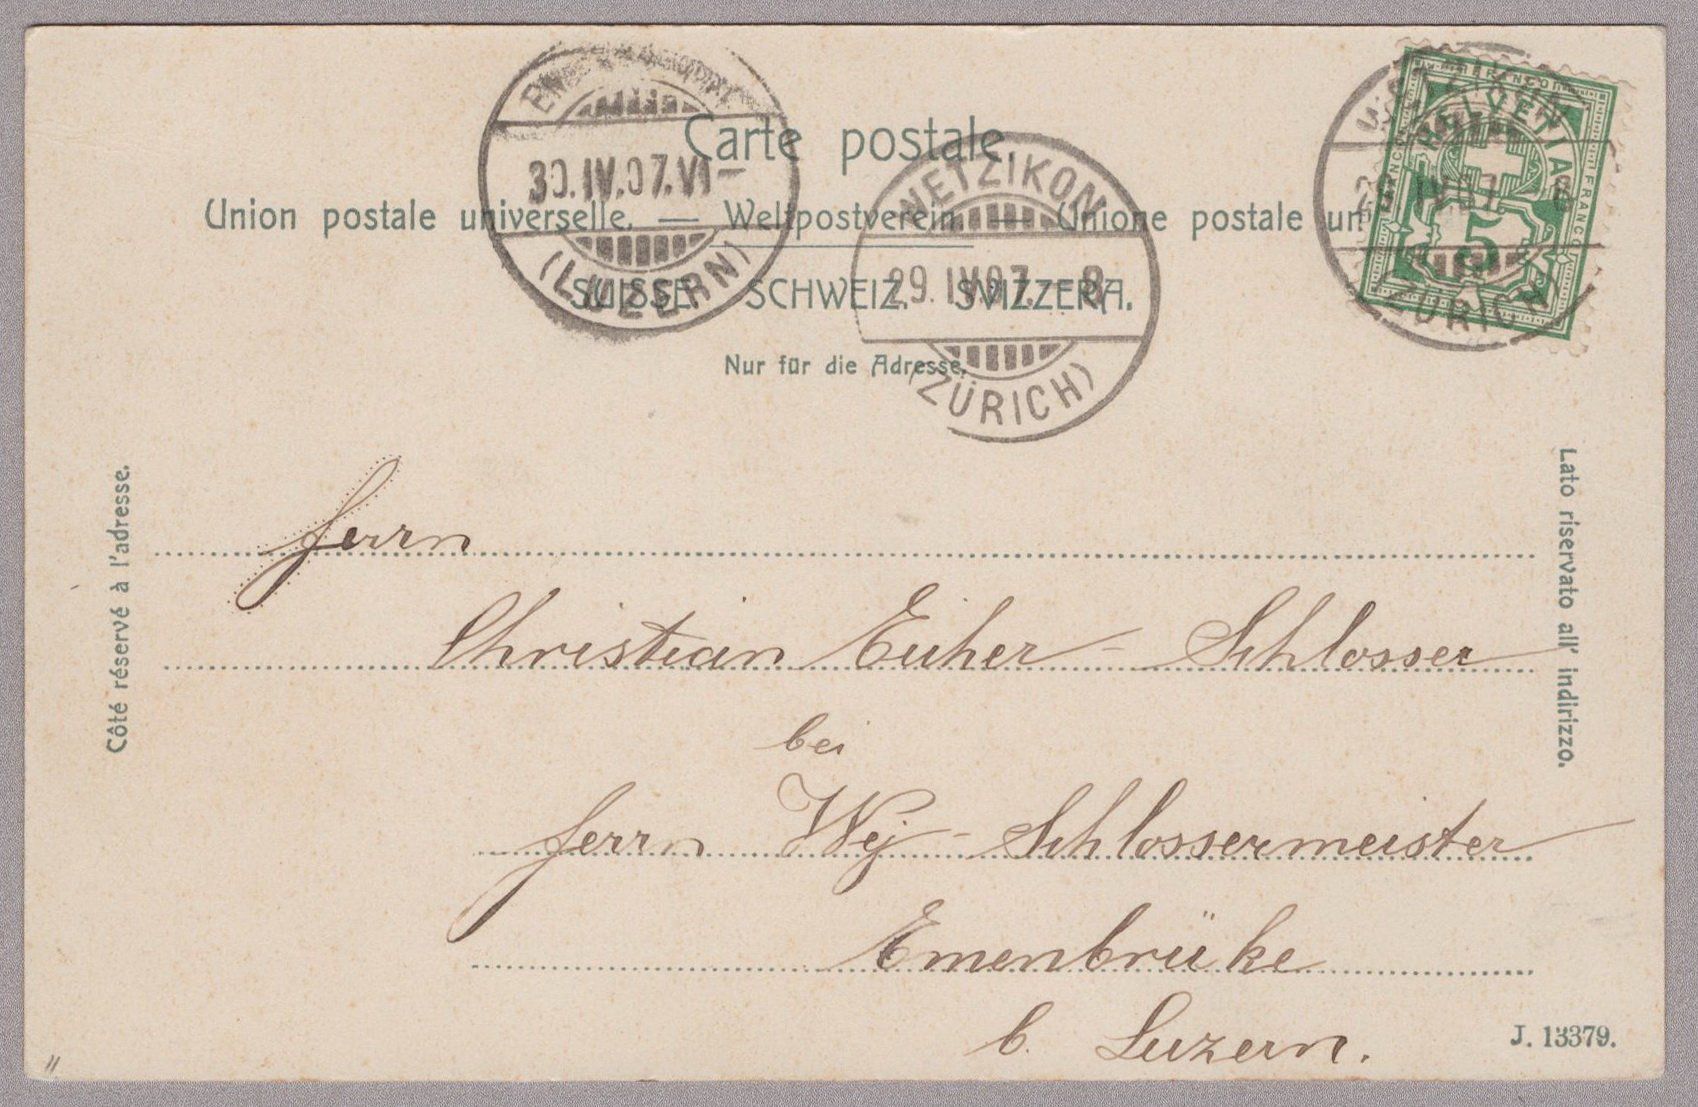 Carte postale.
Union postale universelle. — Weltpostverein. — Unione postale un
SUISSE. SCHWEIZ. SVIZZERA.
Nur für die Adresse.
30.IV.07.VI–
(LUZERN)
WETZIKON
29.IV.07.–8
(ZÜRICH)
WETZIKON
(ZÜRICH)
FRANCO
HELVETIA
FRANCO
FRANCO
5
Côté réservé à l'adresse.
Lato riservato all' indirizzo.
Herrn
Christian Eicher - Schlosser
bei
Herrn Wey - Schlossermeister
Emenbrüke
b. Luzern.
J. 13379.